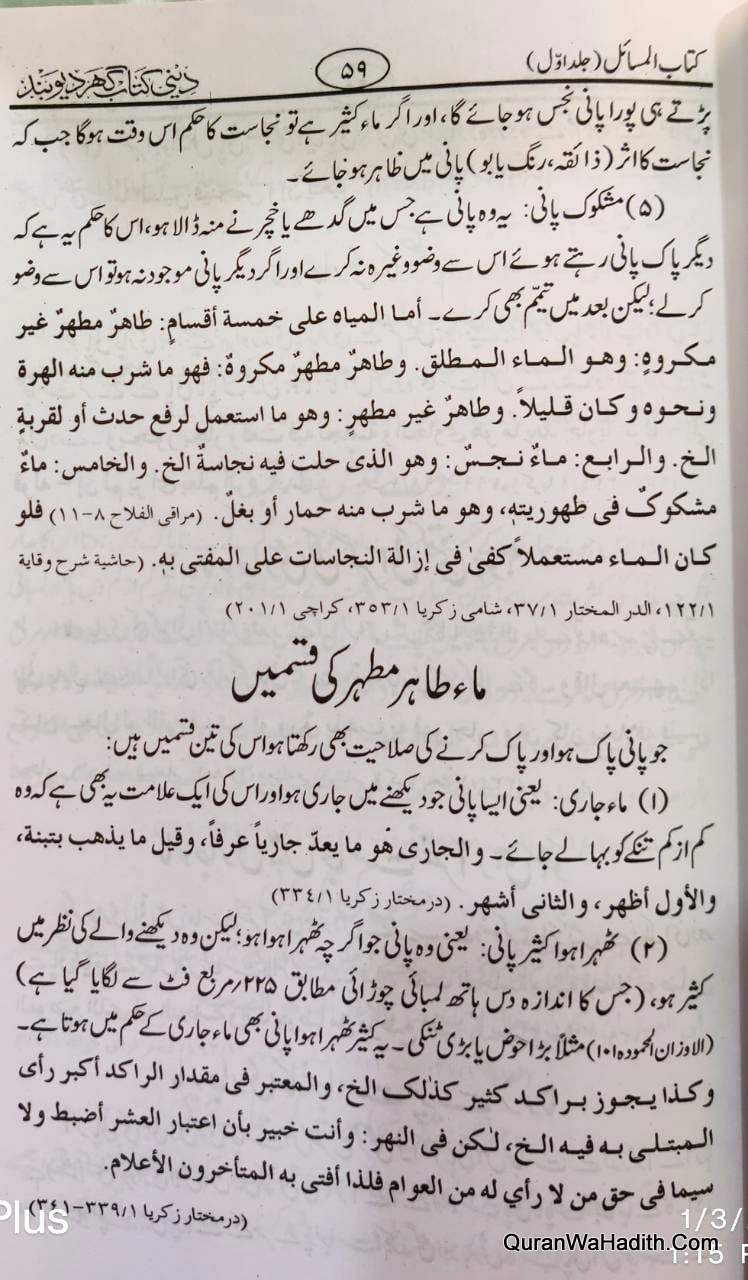 کتاب المسائل (جلد اوّل)
۵۹
دینی کتاب گھر دیوبند
پڑتے ہی پورا پانی نجس ہوجائے گا، اور اگر ماء کثیر ہے تو نجاست کا حکم اس وقت ہوگا جب کہ
نجاست کا اثر (ذائقہ، رنگ یا بو) پانی میں ظاہر ہوجائے۔
(۵) مشکوک پانی: یہ وہ پانی ہے جس میں گدھے یا خچر نے منہ ڈالا ہو، اس کا حکم یہ ہے کہ
دیگر پاک پانی رہتے ہوئے اس سے وضو وغیرہ نہ کرے اور اگر دیگر پانی موجود نہ ہو تو اس سے وضو
کرلے؛ لیکن بعد میں تیمّم بھی کرے۔ أما المياه على خمسة أقسام: طاهرٌ مطهرٌ غير
مكروهٍ: وهو الماء المطلق. وطاهرٌ مطهرٌ مكروهٌ: فهو ما شرب منه الهرة
ونحوه وكان قليلاً. وطاهرٌ غير مطهرٍ: وهو ما استعمل لرفع حدث أو لقربةٍ
الخ. والرابع: ماءٌ نجسٌ: وهو الذى حلت فيه نجاسةٌ الخ. والخامس: ماءٌ
مشكوكٌ فى طهوريتهٖ، وهو ما شرب منه حمار أو بغلٌ. (مراقى الفلاح ٨-١١) فلو
كان الماء مستعملاً كفىٰ فى إزالة النجاسات على المفتى بهٖ. (حاشية شرح وقاية
١٢٢/١، الدر المختار ٣٧/١، شامى زكريا ٣٥٣/١، كراچى ٢٠١/١)
ماء طاہر مطہر کی قسمیں
جو پانی پاک ہو اور پاک کرنے کی صلاحیت بھی رکھتا ہو اس کی تین قسمیں ہیں:
(۱) ماء جاری: یعنی ایسا پانی جو دیکھنے میں جاری ہو اور اس کی ایک علامت یہ بھی ہے کہ وہ
کم از کم تنکے کو بہا لے جائے۔ والجارى هو ما يعدّ جارياً عرفاً، وقيل ما يذهب بتبنة،
والأول أظهر، والثانى أشهر. (درمختار زكريا ٣٣٤/١)
(۲) ٹھہرا ہوا کثیر پانی: یعنی وہ پانی جو اگرچہ ٹھہرا ہوا ہو؛ لیکن وہ دیکھنے والے کی نظر میں
کثیر ہو، (جس کا اندازہ دس ہاتھ لمبائی چوڑائی مطابق ۲۲۵؍مربع فٹ سے لگایا گیا ہے)
(الاوزان المحمودہ ۱۰۱) مثلاً بڑا حوض یا بڑی ٹنکی۔ یہ کثیر ٹھہرا ہوا پانی بھی ماء جاری کے حکم میں ہوتا ہے۔
وكذا يجوز براكد كثير كذٰلك الخ، والمعتبر فى مقدار الراكد أكبر رأى
المبتلى به فيه الخ، لٰكن فى النهر: وأنت خبير بأن اعتبار العشر أضبط ولا
سيما فى حق من لا رأي له من العوام فلذا أفتى به المتأخرون الأعلام.
(درمختار زكريا ٣٣٩/١-٣٤١)
Plus
1/3/
1:15 P
QuranWaHadith.Com